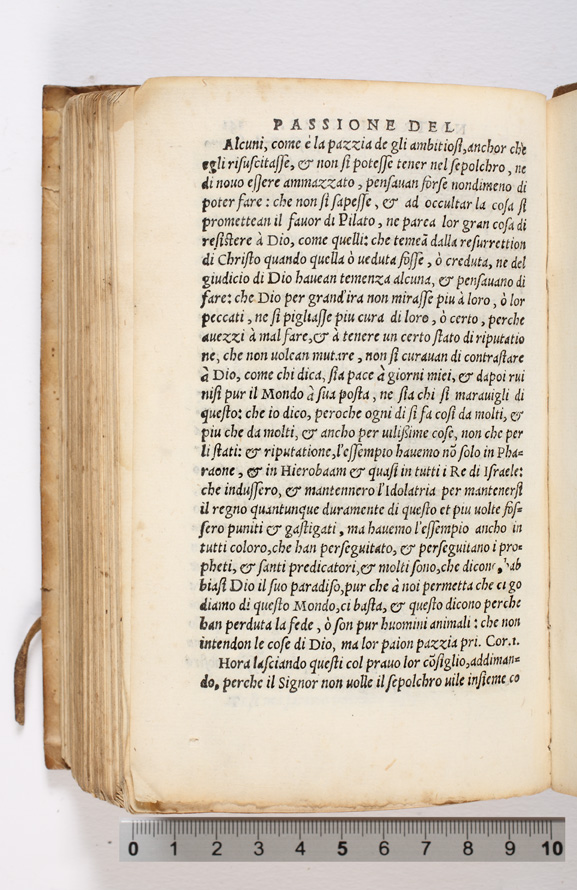 PASSIONE DEL
Alcuni, come è la pazzia de gli ambitiosi, anchor che
egli risuscitasse, & non si potesse tener nel sepolchro, ne
di nouo essere ammazzato, pensauan forse nondimeno di
poter fare: che non si sapesse, & ad occultar la cosa si
promettean il fauor di Pilato, ne parea lor gran cosa di
resistere à Dio, come quelli: che temeā dalla resurrettion
di Christo quando quella ò ueduta fosse, ò creduta, ne del
giudicio di Dio hauean temenza alcuna, & pensauano di
fare: che Dio per grand'ira non mirasse piu à loro, ò lor
peccati, ne si pigliasse piu cura di loro, ò certo, perche
auezzi à mal fare, & à tenere un certo stato di riputatio
ne, che non uolean mutare, non si curauan di contrastare
à Dio, come chi dica, sia pace à giorni miei, & dapoi rui
nisi pur il Mondo à sua posta, ne sia chi si marauigli di
questo: che io dico, peroche ogni di si fa cosi da molti, &
piu che da molti, & ancho per uilissime cose, non che per
li stati: & riputatione, l'essempio hauemo nō solo in Pha-
raone, & in Hierobaam & quasi in tutti i Re di Israele:
che indussero, & mantennero l'Idolatria per mantenersi
il regno quantunque duramente di questo et piu uolte fos-
sero puniti & gastigati, ma hauemo l'essempio ancho in
tutti coloro, che han perseguitato, & perseguitano i pro-
pheti, & santi predicatori, & molti sono, che dicono, hab
biasi Dio il suo paradiso, pur che à noi permetta che ci go
diamo di questo Mondo, ci basta, & questo dicono perche
han perduta la fede, ò son pur huomini animali: che non
intendon le cose di Dio, ma lor paion pazzia pri. Cor.1.
Hora lasciando questi col prauo lor cōsiglio, addiman-
do, perche il Signor non uolle il sepolchro uile insieme co
0 1 2 3 4 5 6 7 8 9 10